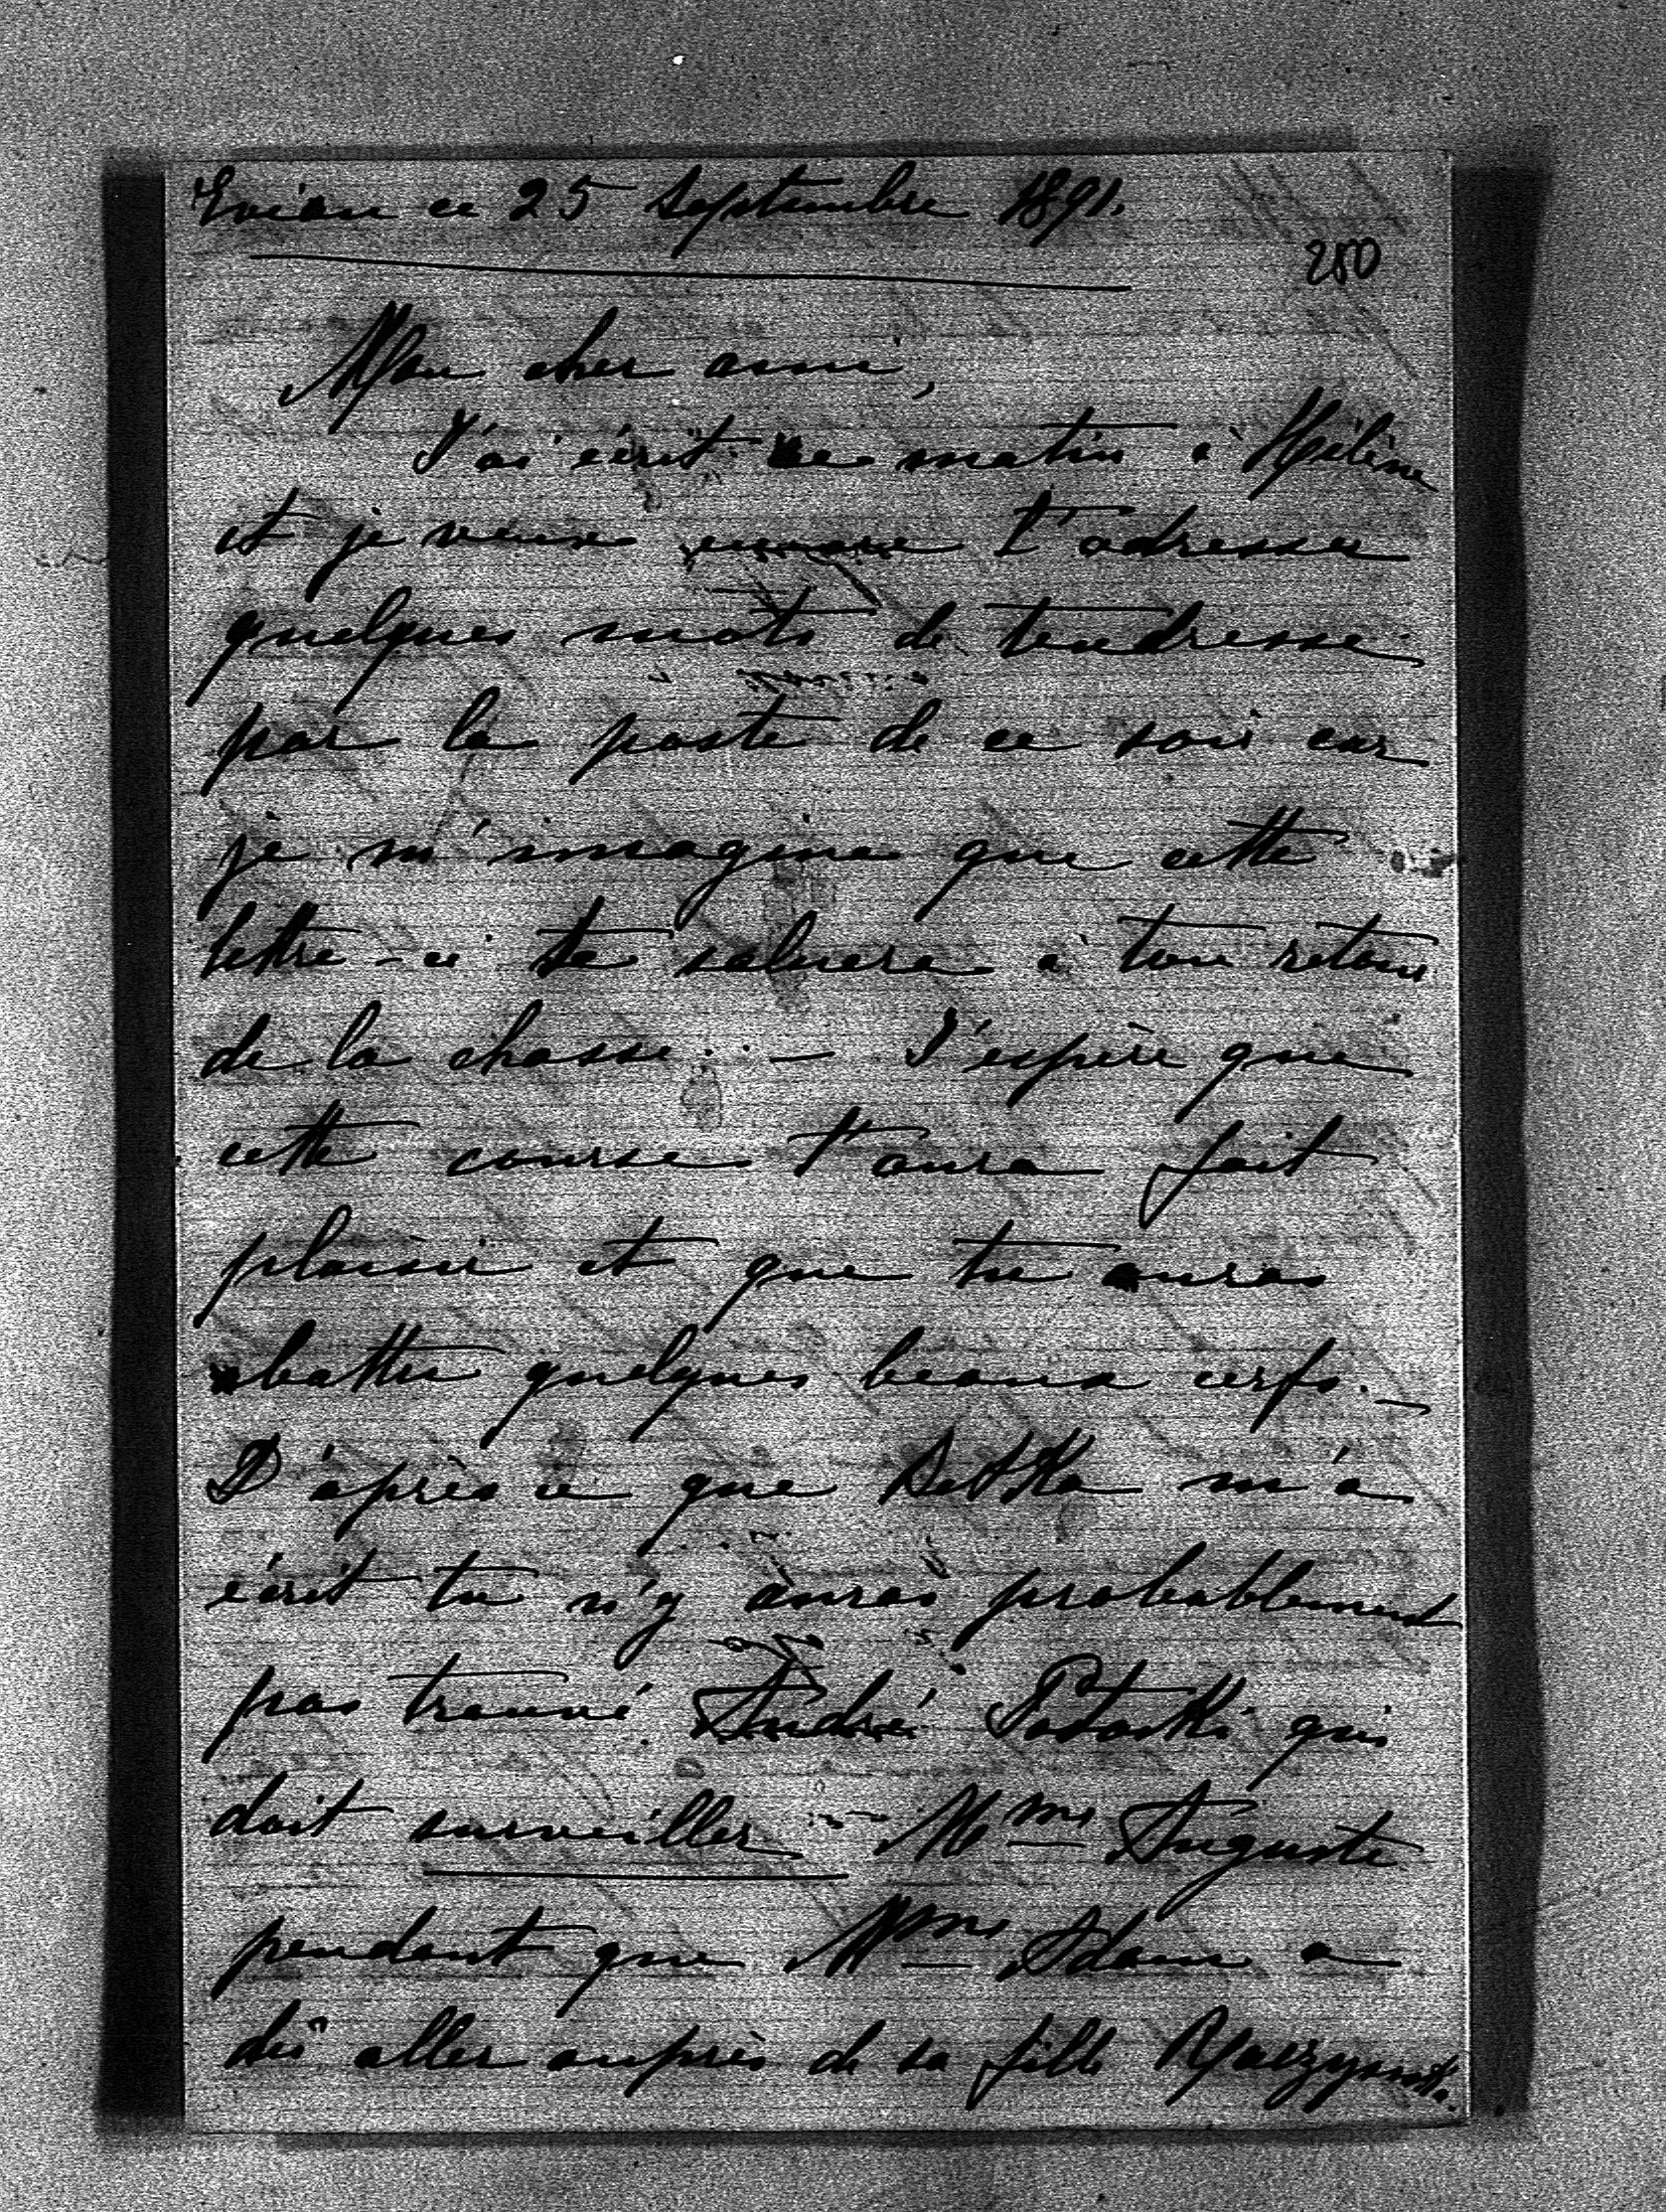 Evian ce 25 Septembre 1891.
280
Mon cher ami,
J'ai écrit ce matin à Hélène
et je veux encore t'adresser
quelques mots de tendresse
par la poste de ce soir car
je m'imagine que cette
lettre-ci te saluera à ton retour
de la chasse. — J'espère que
cette course t'aura fait
plaisir et que tu auras
abattu quelques beaux cerfs. —
D'après ce que m'a
écrit tu n'y auras probablement
pas trouvé André Potocki qui
doit surveiller Mme Auguste
pendant que Mme Adam a
dû aller auprès de sa fille Raczynska.